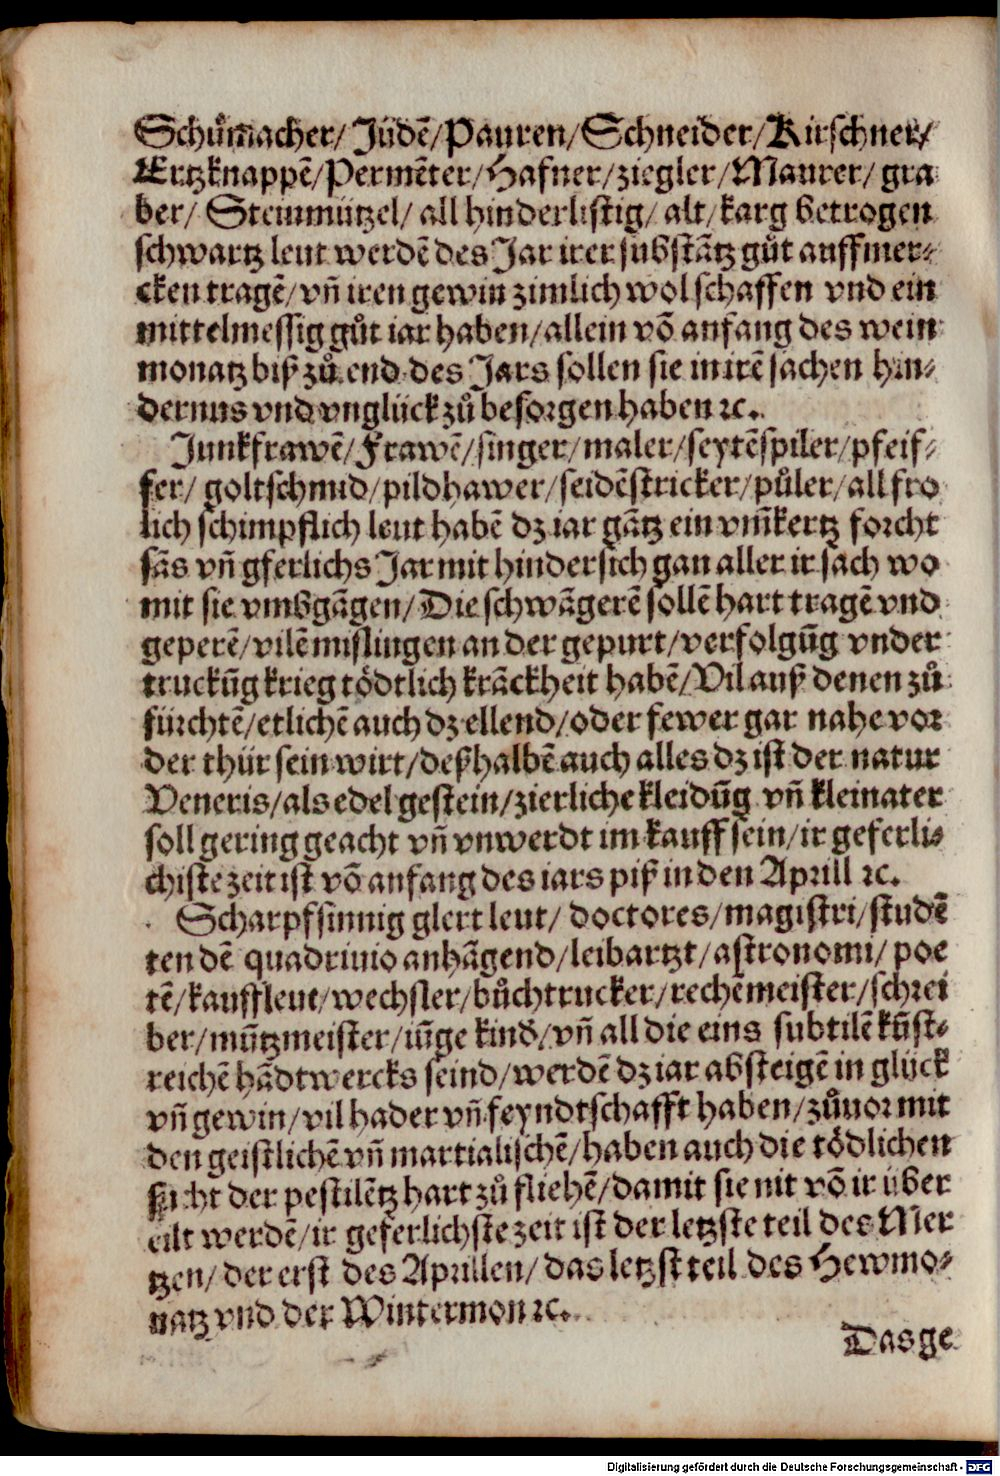 Schůmacher/ Jüdē/ Pauren/ Schneider/ Kirschner/
Ertzknappē/ Permēter/ Hafner/ ziegler/ Maurer/ gra
ber/ Steinmützel/ all hinderlistig/ alt/ karg betrogen
schwartz leut werdē des Jar irer substātz gůt auffmer⸗
cken tragē/ vn̄ iren gewin zimlich wol schaffen vnd ein
mittelmessig gůt iar haben/ allein vō anfang des wein
monatz biß zů end des Jars sollen sie in irē sachen hin⸗
dernus vnd vnglück zů besorgen haben ꝛc.
Junkfrawē/ Frawē/ singer/ maler/ seytēspiler/ pfeif⸗
fer/ goltschmid/ pildhawer/ seidēstricker/ půler/ all fro
lich schimpflich leut habē dz iar gātz ein vm̄kertz forcht
sās vn̄ gferlichs Jar mit hindersich gan aller ir sach wo
mit sie vmbgāgen/ Die schwāgerē sollē hart tragē vnd
geperē/ vilē mislingen an der gepurt/ verfolgūg vnder
truckūg krieg tödtlich krāckheit habē/ Vil auß denen zů
fürchtē/ etlichē auch dz ellend/ oder fewer gar nahe vor
der thür sein wirt/ deßhalbē auch alles dz ist der natur
Veneris/ als edel gestein/ zierliche kleidūg vn̄ kleinater
soll gering geacht vn̄ vnwerdt im kauff sein/ ir geferli⸗
chiste zeit ist vō anfang des iars piß in den Aprill ꝛc.
Scharpfsinnig glert leut/ doctores/ magistri/ studē
ten dē quadriuio anhāgend/ leibartzt/ astronomi/ poe
tē/ kauffleut/ wechsler/ bůchtrucker/ rechēmeister/ schrei
ber/ mūtzmeister/ iūge kind/ vn̄ all die eins subtilē kūst⸗
reichē hādtwercks seind/ werdē dz iar absteigē in glück
vn̄ gewin/ vil hader vn̄ feyndtschafft haben/ zůuor mit
den geistlichē vn̄ martialischē/ haben auch die tödlichen
sucht der pestilētz hart zů fliehē/ damit sie nit vō ir über
eilt werdē/ ir geferlichste zeit ist der letzste teil des Mer
tzen/ der erst des Aprillen/ das letzst teil des Hewmo⸗
natz vnd der Wintermon ꝛc.
Das ge
Digitalisierung gefördert durch die Deutsche Forschungsgemeinschaft - DFG